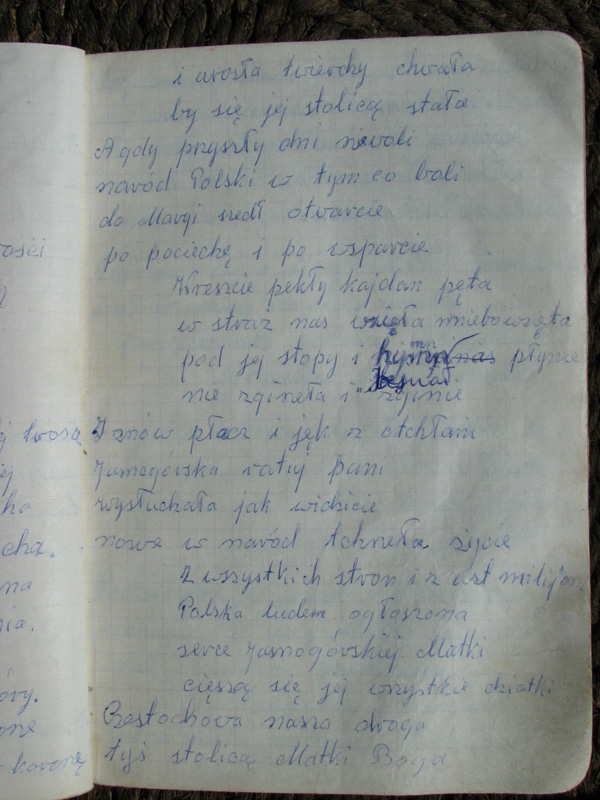 i urosła twierdzy chwała
by się jej stolicą stała
A gdy przyszły dni niewoli
naród Polski w tym co boli
do Maryi szedł otwarcie
po pociechę i po wsparcie
Wreszcie pękły kajdan pęta
w straż nas wzięła wniebowzięta
pod jej stopy i hymn nas płynie
nie zginęła i zginie
I znów płacz i jęk z otchłani
Jasnogórska ratuj pani
wysłuchała jak widzicie
nowe w naród tchnęła życie
Z wszystkich stron i z ust milijon
Polska ludem ogłoszona
serce Jasnogórskiej Matki
cieszą się jej wszystkie dziatki
Częstochowa nasza droga
tyś stolicą Matki Boga
ości
j twoją
ej
cha.
na
nia.
óry.
one
koronę